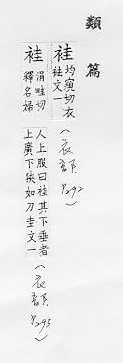 類篇
袿 均窺切衣
袿文一
(衣部 P292)
袿 涓畦切
釋名婦
人上服曰袿其下垂者
上廣下狹如刀圭文一
(衣部 P295)